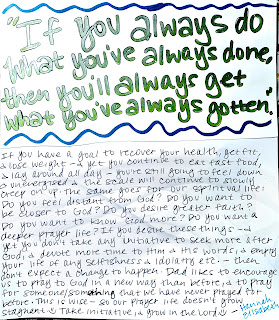 "If you always do
What you've always done,
they you'll always get
what you've always gotten."
If you have a goal to recover your health, get fit,
& lose weight - & yet you continue to eat fast food,
& lay around all day - you're still going to feel down
& unenergised & the scale will continue to slowly
creep on up. The same goes for our spiritual life:
Do you feel distant from God? Do you want to
be closer to God? Do you desire greater faith?
Do you want to know God more? Do you want a
deeper prayer life? If you desire these things - &
yet you don't take any initiative to seek more after
God, & devote more time to Him & His words, & empty
our life of any selfishness & idolatry etc. - then
don't expect a change to happen. Dad likes to encourage
us to pray to God in a new way than before, & to pray
for someone/something that we have never prayed for
before. This is wise - so our prayer life doesn't grow
stagnant. Take initiative & grow in the Word
kennah
elizabeth